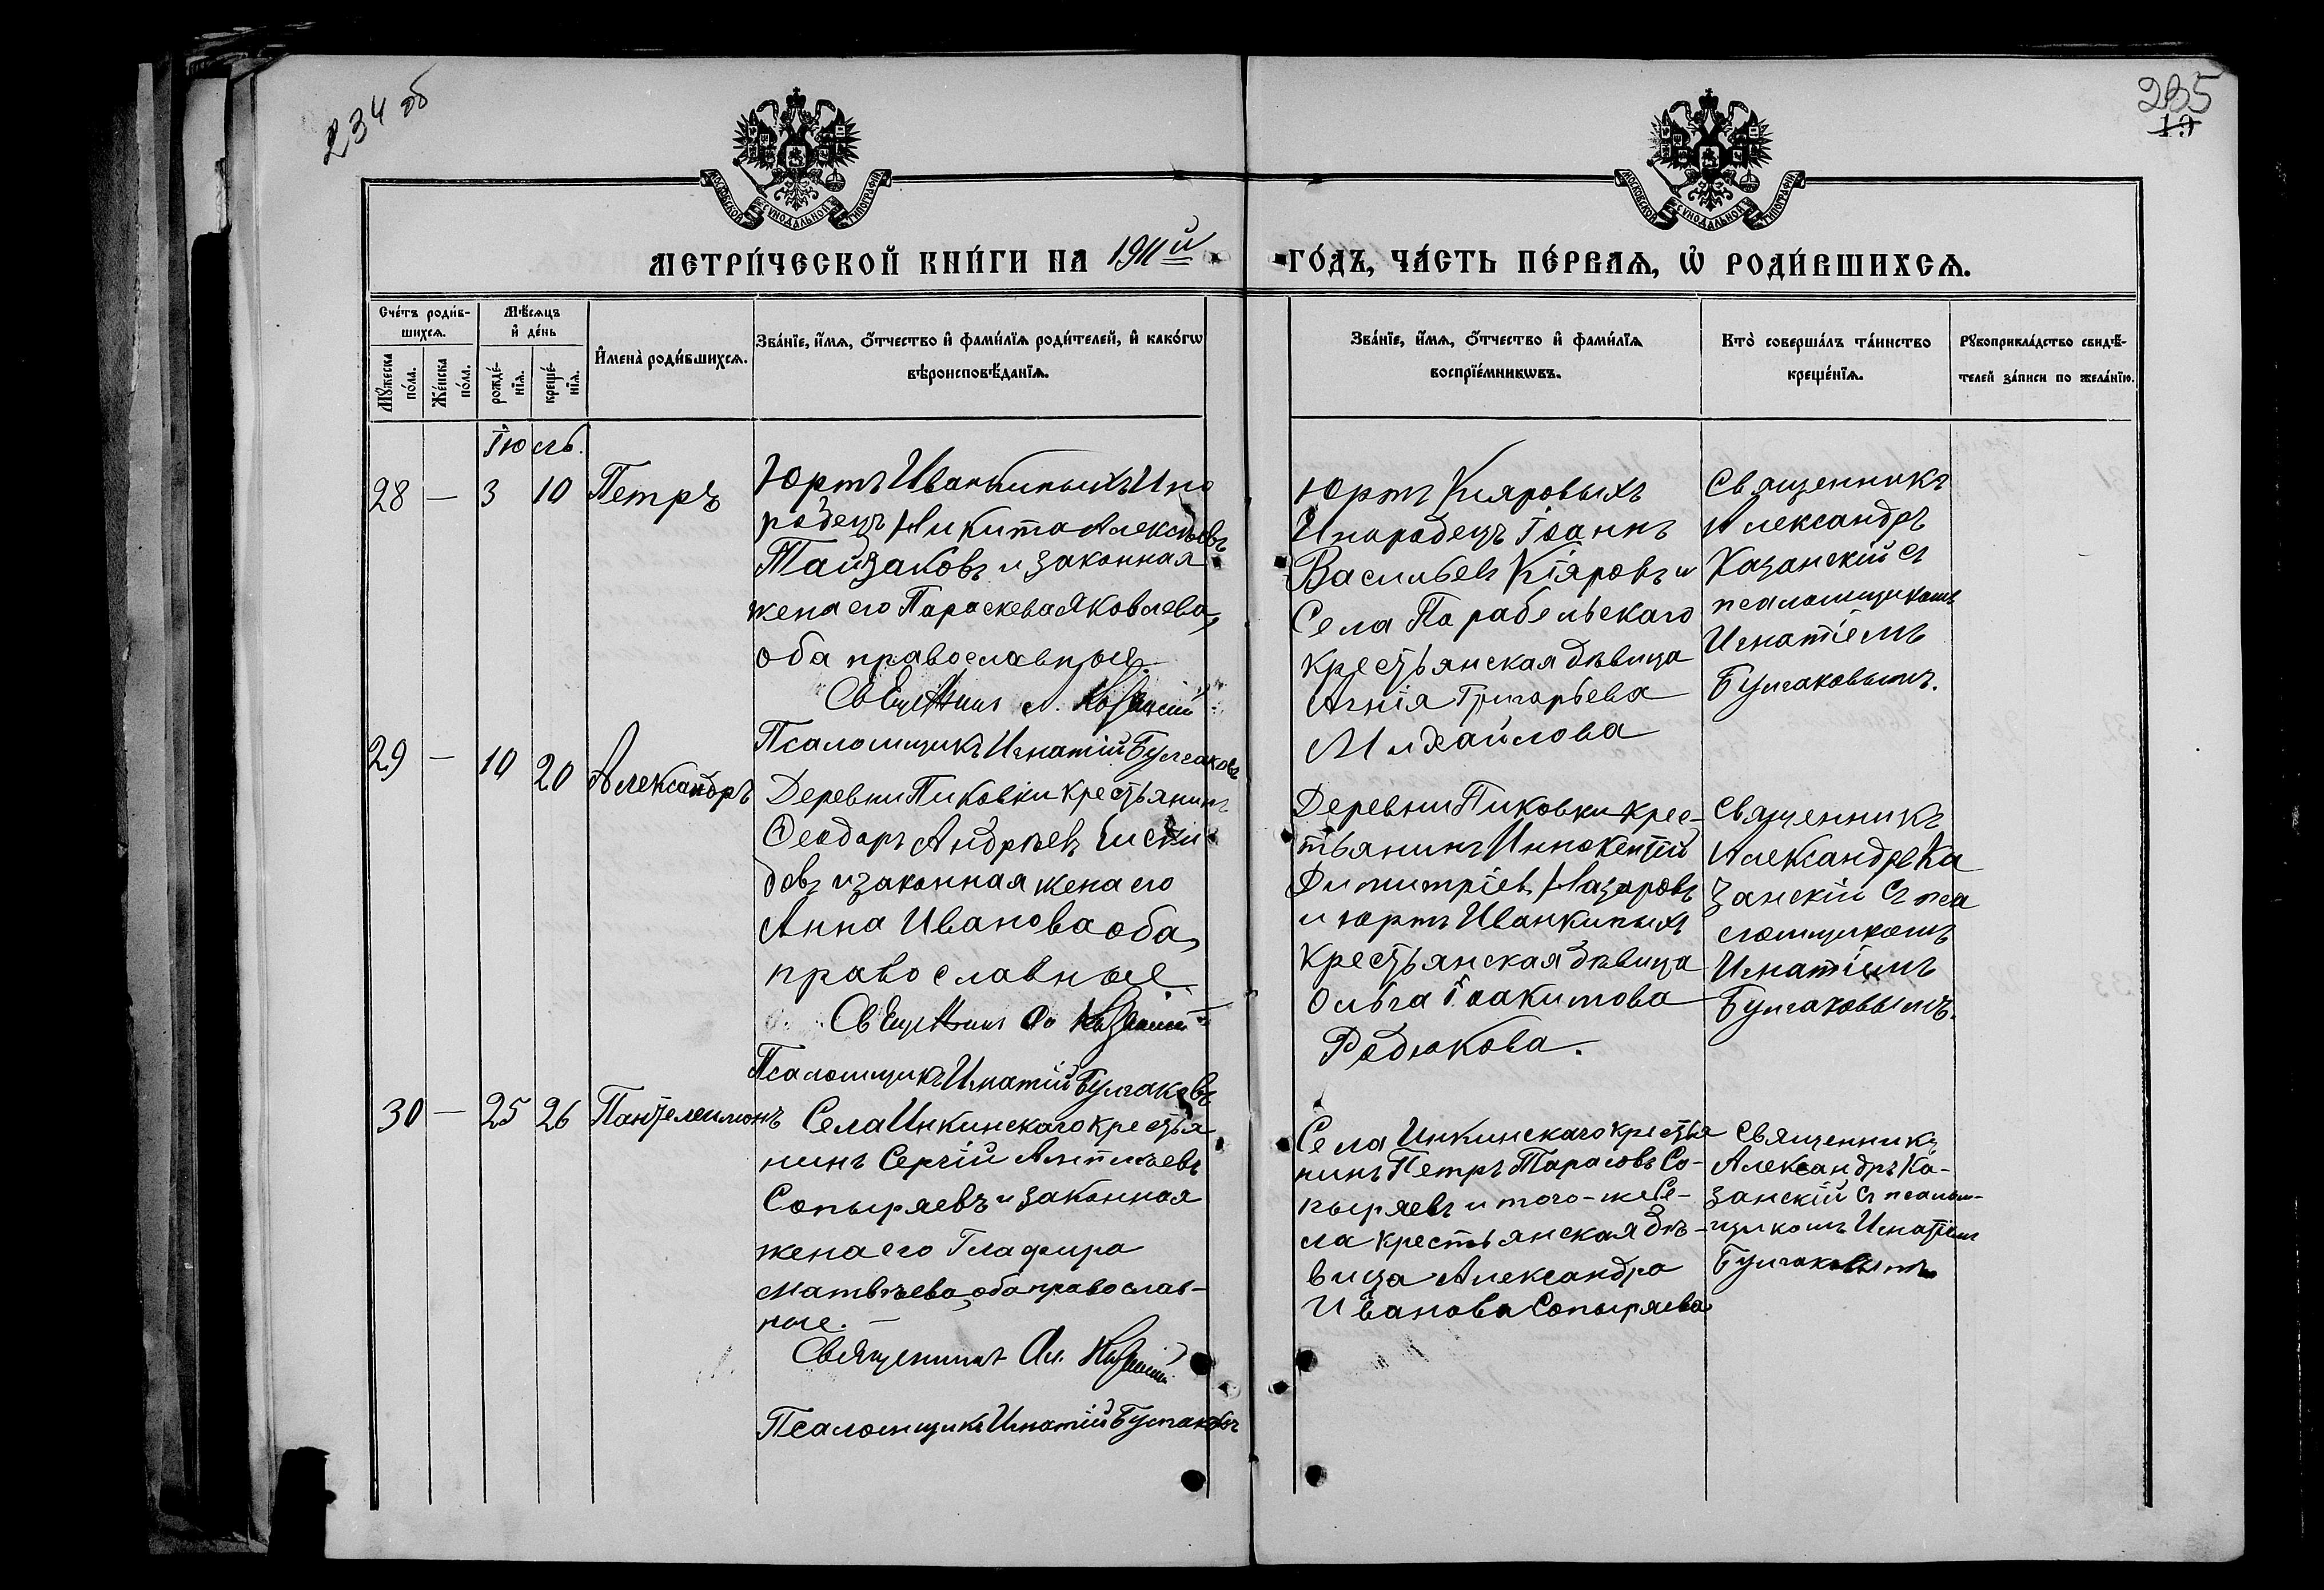 234 об
235
19
МОСКОВСКОЙ СУНОДАЛЬНОЙ ТИПОГРАФІИ
МОСКОВСКОЙ СУНОДАЛЬНОЙ ТИПОГРАФІИ
МЕТРИ́ЧЕСКОЙ КНИ́ГИ НА 1911й
ГО́ДЪ, ЧА́СТЬ ПЕ́РВАѦ, Ѡ҆ РОДИ́ВШИХСѦ.
Сче́тъ роди́в-
шихсѧ.
Мꙋ́жеска по́ла.
Же́нска по́ла.
Мѣ́сѧцъ
и҆ де́нь
рожде́-
нїѧ.
креще́-
нїѧ.
И҆мена̀ роди́вшихсѧ.
Зва́нїе, и҆́мѧ, ѻ҆́тчество и҆ фами́лїѧ роди́телей, и҆ како́гѡ
вѣроисповѣ́данїѧ.
Зва́нїе, и҆́мѧ, ѻ҆́тчество и҆ фами́лїѧ
воспрїе́мникѡвъ.
Кто̀ соверша́лъ та́инство
креще́нїѧ.
Рꙋкоприкла́дство свидѣ́-
телей за́писи по жела́нїю.
Іюль.
28 — 3 10 Петръ
Юртъ Иванкиныхъ Ино
родецъ Никита Алексѣевъ
Тайзаковъ и законная
жена его Параскева Яковлева,
оба православные.
Священникъ А. Казанскій
Псаломщикъ Игнатій Булгаковъ
Юртъ Кіяровыхъ
Инородецъ Іоаннъ
Васильевъ Кіяровъ и
Села Парабельскаго
крестьянская дѣвица
Агнія Григорьева
Михайлова
Священникъ
Александръ
Казанскій съ
псаломщикомъ
Игнатіемъ
Булгаковымъ.
29 — 10 20 Александръ
Деревни Пиковки крестьянинъ
Ѳеодоръ Андреевъ
и законная жена его
Анна Иванова оба,
православные.
Священникъ Ал Казанскій
Псаломщикъ Игнатій Булгаковъ
Деревни Пиковки крес-
тьянинъ Иннокентій
Димитріевъ Назаровъ
и юртъ Иванкиныхъ
крестьянская дѣвица
Ольга Іоакимова
Родюкова.
Священникъ
Александръ Ка
занскій съ пса
ломщикомъ
Игнатіемъ
Булгаковымъ.
30 — 25 26 Пантелеимонъ
Села Инкинскаго крестья
нинъ Сергій
Сопыряевъ и законная
жена его Глафира
Матвѣева, оба православ-
ные. —
Священникъ Ал. Казанскій
Псаломщикъ Игнатій Булгаковъ
Села Инкинскаго крестья
нинъ Петръ Тарасовъ Со-
пыряевъ и того-же Се-
ла крестьянская дѣ-
вица Александра
Иванова Сопыряева
Священникъ
Александръ Ка-
занскій съ псалом-
щикомъ Игнатіемъ
Булгаковымъ